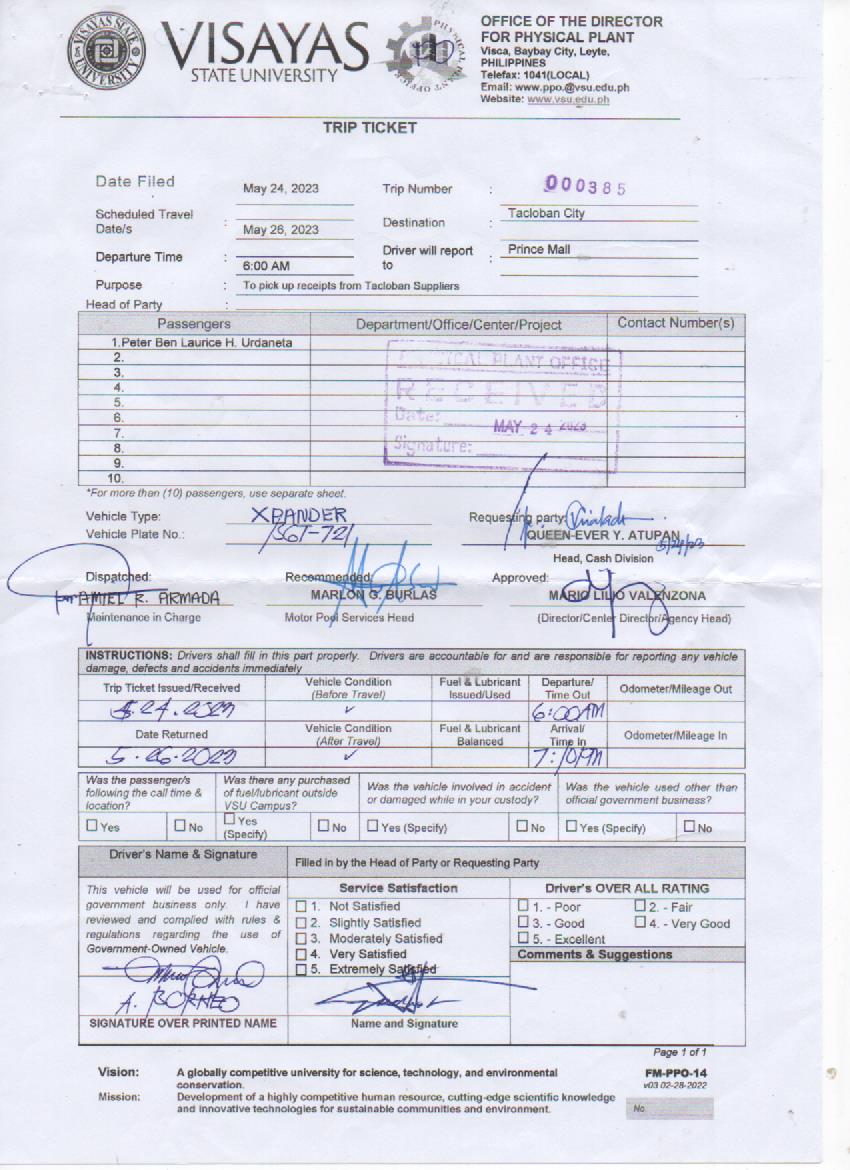 VISAYAS
STATE UNIVERSITY
VISAYAS STATE UNIVERSITY
OFFICE OF THE DIRECTOR
FOR PHYSICAL PLANT
Visca, Baybay City, Leyte,
PHILIPPINES
Telefax: 1041(LOCAL)
Email: www.ppo.@vsu.edu.ph
Website: www.vsu.edu.ph
TRIP TICKET
Date Filed May 24, 2023 Trip Number : 000385
Scheduled Travel Date/s : May 26, 2023 Destination : Tacloban City
Departure Time : 6:00 AM Driver will report to : Prince Mall
Purpose : To pick up receipts from Tacloban Suppliers
Head of Party :
Passengers Department/Office/Center/Project Contact Number(s)
1.Peter Ben Laurice H. Urdaneta
2.
3.
4.
5.
6.
7.
8.
9.
10.
PHYSICAL PLANT OFFICE
RECEIVED
Date: MAY 24 2023
Signature:
*For more than (10) passengers, use separate sheet.
Vehicle Type: XPANDER Requesting party:
Vehicle Plate No.: QUEEN-EVER Y. ATUPAN 5/24/23
Head, Cash Division
Dispatched: Recommended: Approved:
AMIEL R. ARMADA MARLON G. BURLAS MARIO LILIO VALENZONA
Maintenance in Charge Motor Pool Services Head (Director/Center Director/Agency Head)
INSTRUCTIONS: Drivers shall fill in this part properly. Drivers are accountable for and are responsible for reporting any vehicle
damage, defects and accidents immediately
Trip Ticket Issued/Received Vehicle Condition (Before Travel) Fuel & Lubricant Issued/Used Departure/ Time Out Odometer/Mileage Out
5.24.2023 ✓ 6:00AM
Date Returned Vehicle Condition (After Travel) Fuel & Lubricant Balanced Arrival/ Time In Odometer/Mileage In
5.26.2023 ✓
Was the passenger/s following the call time & location? Was there any purchased of fuel/lubricant outside VSU Campus? Was the vehicle involved in accident or damaged while in your custody? Was the vehicle used other than official government business?
☐ Yes ☐ No ☐ Yes (Specify) ☐ No ☐ Yes (Specify) ☐ No ☐ Yes (Specify) ☐ No
Driver's Name & Signature Filled in by the Head of Party or Requesting Party
This vehicle will be used for official
government business only. I have
reviewed and complied with rules &
regulations regarding the use of
Government-Owned Vehicle.
A. BORNEO
SIGNATURE OVER PRINTED NAME
Service Satisfaction
☐ 1. Not Satisfied
☐ 2. Slightly Satisfied
☐ 3. Moderately Satisfied
☐ 4. Very Satisfied
☐ 5. Extremely Satisfied
Name and Signature
Driver's OVER ALL RATING
☐ 1. - Poor ☐ 2. - Fair
☐ 3. - Good ☐ 4. - Very Good
☐ 5. - Excellent
Comments & Suggestions
Page 1 of 1
Vision: A globally competitive university for science, technology, and environmental
conservation.
Mission: Development of a highly competitive human resource, cutting-edge scientific knowledge
and innovative technologies for sustainable communities and environment.
FM-PPO-14
v03 02-28-2022
No.